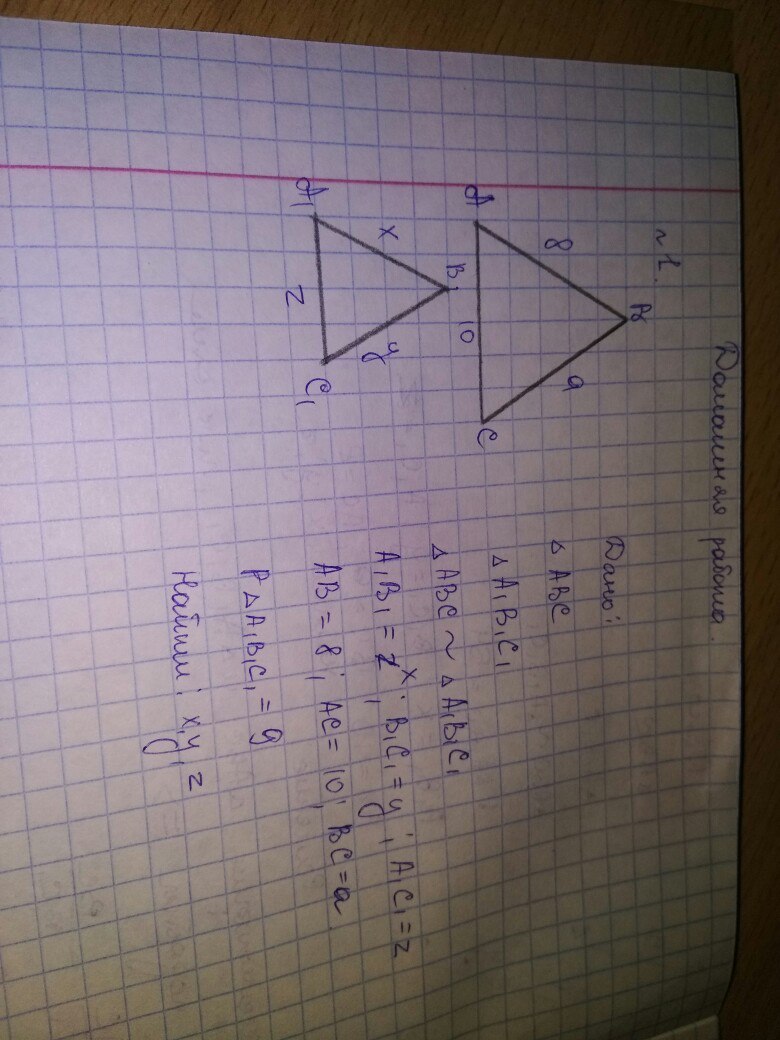 Домашняя работа.
~1.
B
8
a
A
10
C
B1
x
y
A1
z
C1
Дано:
△ ABC
△ A1B1C1
△ ABC ~ △ A1B1C1
A1B1 = x; B1C1 = y; A1C1 = z
AB = 8; AC = 10; BC = a
P△A1B1C1 = 9
Найти: x, y, z